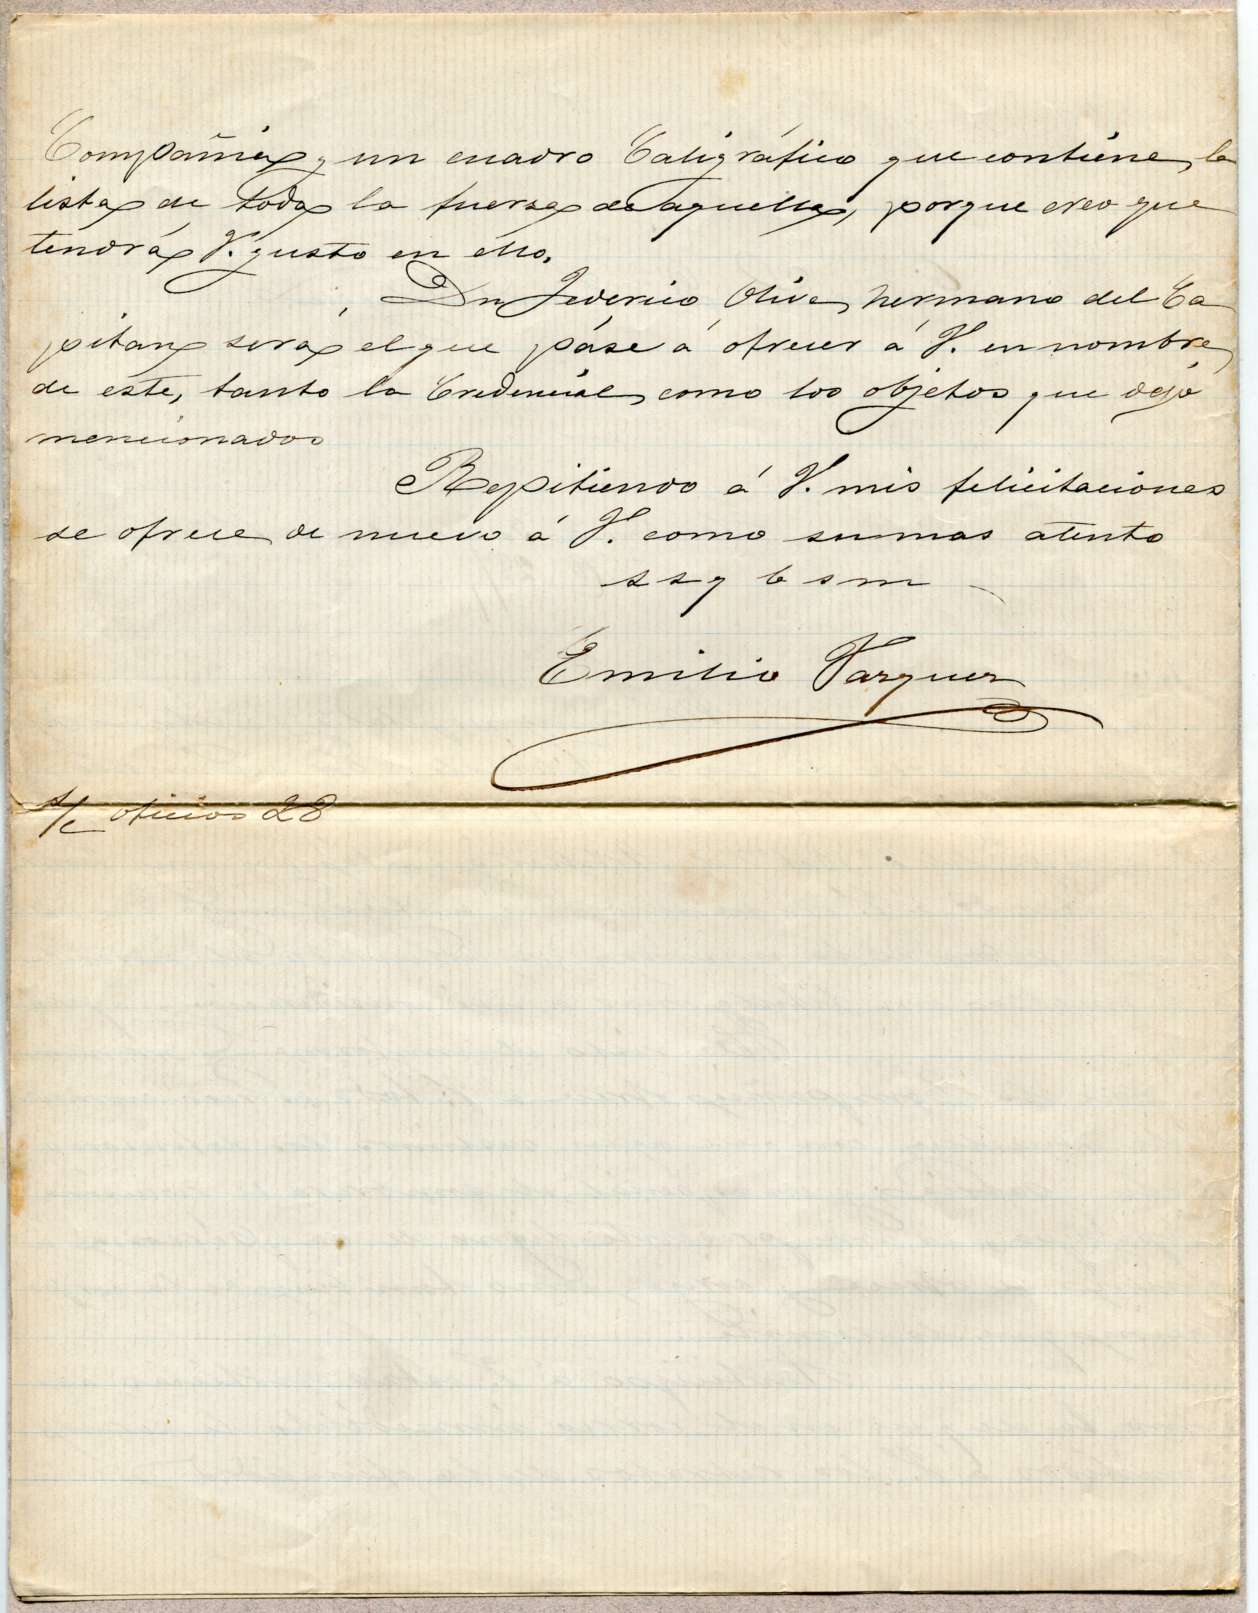 Compañia y un cuadro Caligráfico que contiene la
lista de toda la fuersa de aquella, porque creo que
tendrá V. gusto en ello.
Dn Federico Oliva, hermano del Ca
pitan será el que páse á ofrecer á V. en nombre
de este, tanto la Credencial, como los objetos que dejo
mencionados
Repitiendo á V. mis felicitaciones
se ofrece de nuevo á V. como su mas atento
s s q b s m
Emilio Vazquez
s/c oficios 28